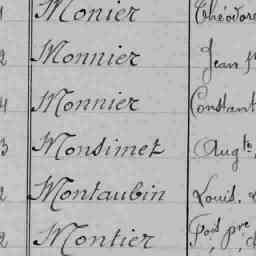 Monier Théodore
2 Monnier Jean
4 Monnier Constant
3 Monsimet Aug^te
2 Montaubin Louis,
2 Montier Fois pre